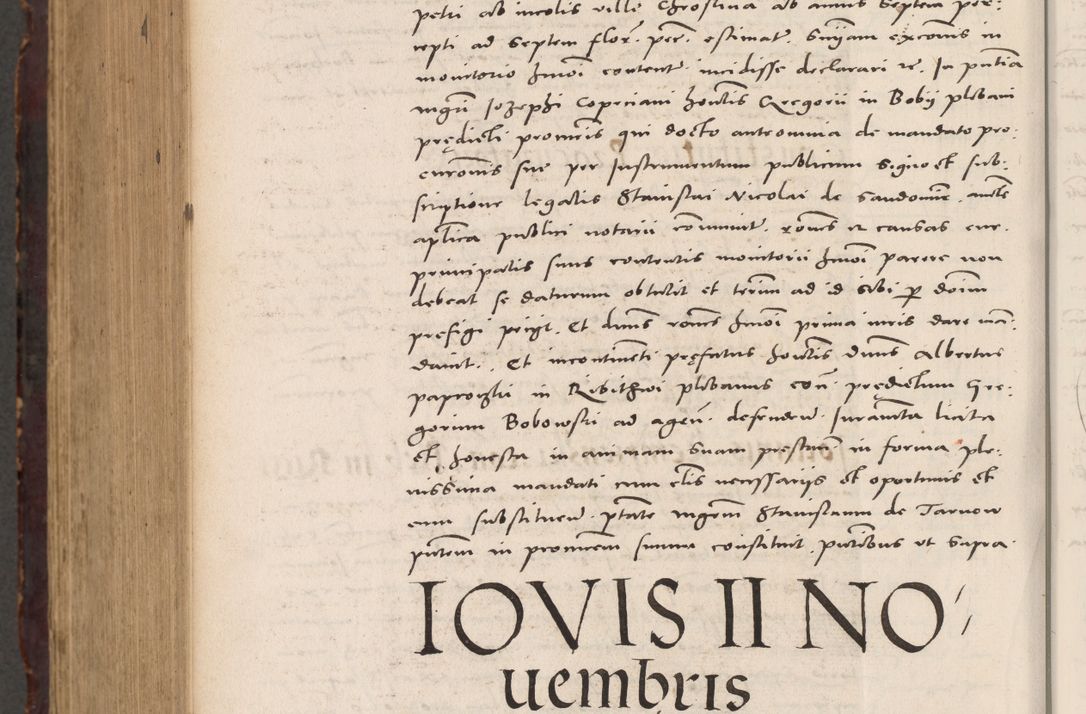 petri ab incolis ville Chrostina ab annis septem per-
cepti ad septem flor. per. estimat. Sniam excomis in
monitorio hmoi content. incidisse declarari etc. In pntia
mgri Jozephi Copriani honlis Gregorii in Bobij plebani
prędicti promris qui docto anteomnia de mandato pro-
curonis sue per Instrumentum publicum signo et sub-
scriptione legalis Stanislai Nicolai de Sandomir. aucte
aplica publici notarii comunit. rones et causas cur
principalis suus contentis monitorii hmoi parere non
debeat se daturum obtulit et termi ad id sibi p donum
prefigi petijt. Et dnus rones hmoi prima iuris dare man-
davit. Et incontinenti pręfatus honlis dnus Albertus
paproczki in plebanus con. prędictum Gre-
gorium Bobowski ad agen. defenden. Juramta licita
et honesta in animam suam prestan. in forma ple-
nissima mandati cum clis necessariis et oportunis et
cum substituen. ptate mgrum Stanislaum de Tarnow
pntem in promrem suum constituit. pntibus ut supra
IOVIS II NO
uembris